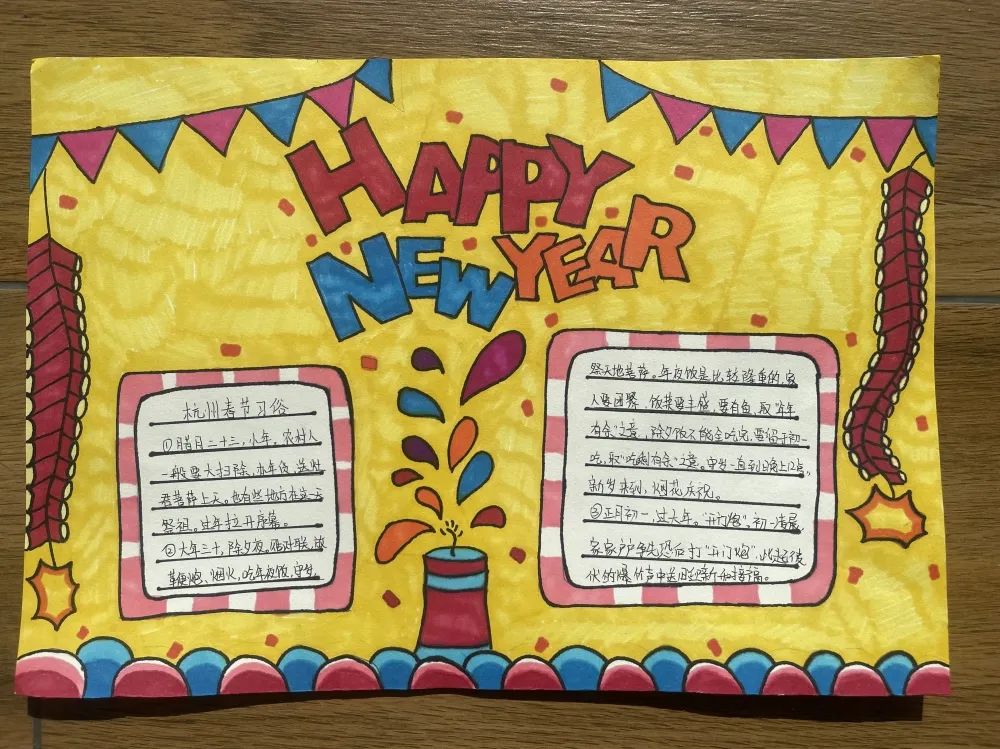 HAPPY
NEW YEAR
杭州春节习俗
①腊月二十三,小年。农村人
一般要大扫除、办年货、送灶
君菩萨上天。也有些地方在这一天
祭祖。过年拉开序幕。
②大年三十,除夕夜。贴对联、放
鞭炮、烟火,吃年夜饭,守岁,
祭天地菩萨。年夜饭是比较隆重的,家
人要团聚,饭菜要丰盛,要有鱼,取“年年
有余”之意,除夕饭不能全吃完,要留于初一
吃,取“吃剩有余”之意。守岁一直到晚上12点。
新岁来到,烟花庆祝。
③正月初一,过大年。“开门炮”,初一清晨
家家户户争先恐后打“开门炮”,此起彼
伏的爆竹声中送旧迎新和接福。